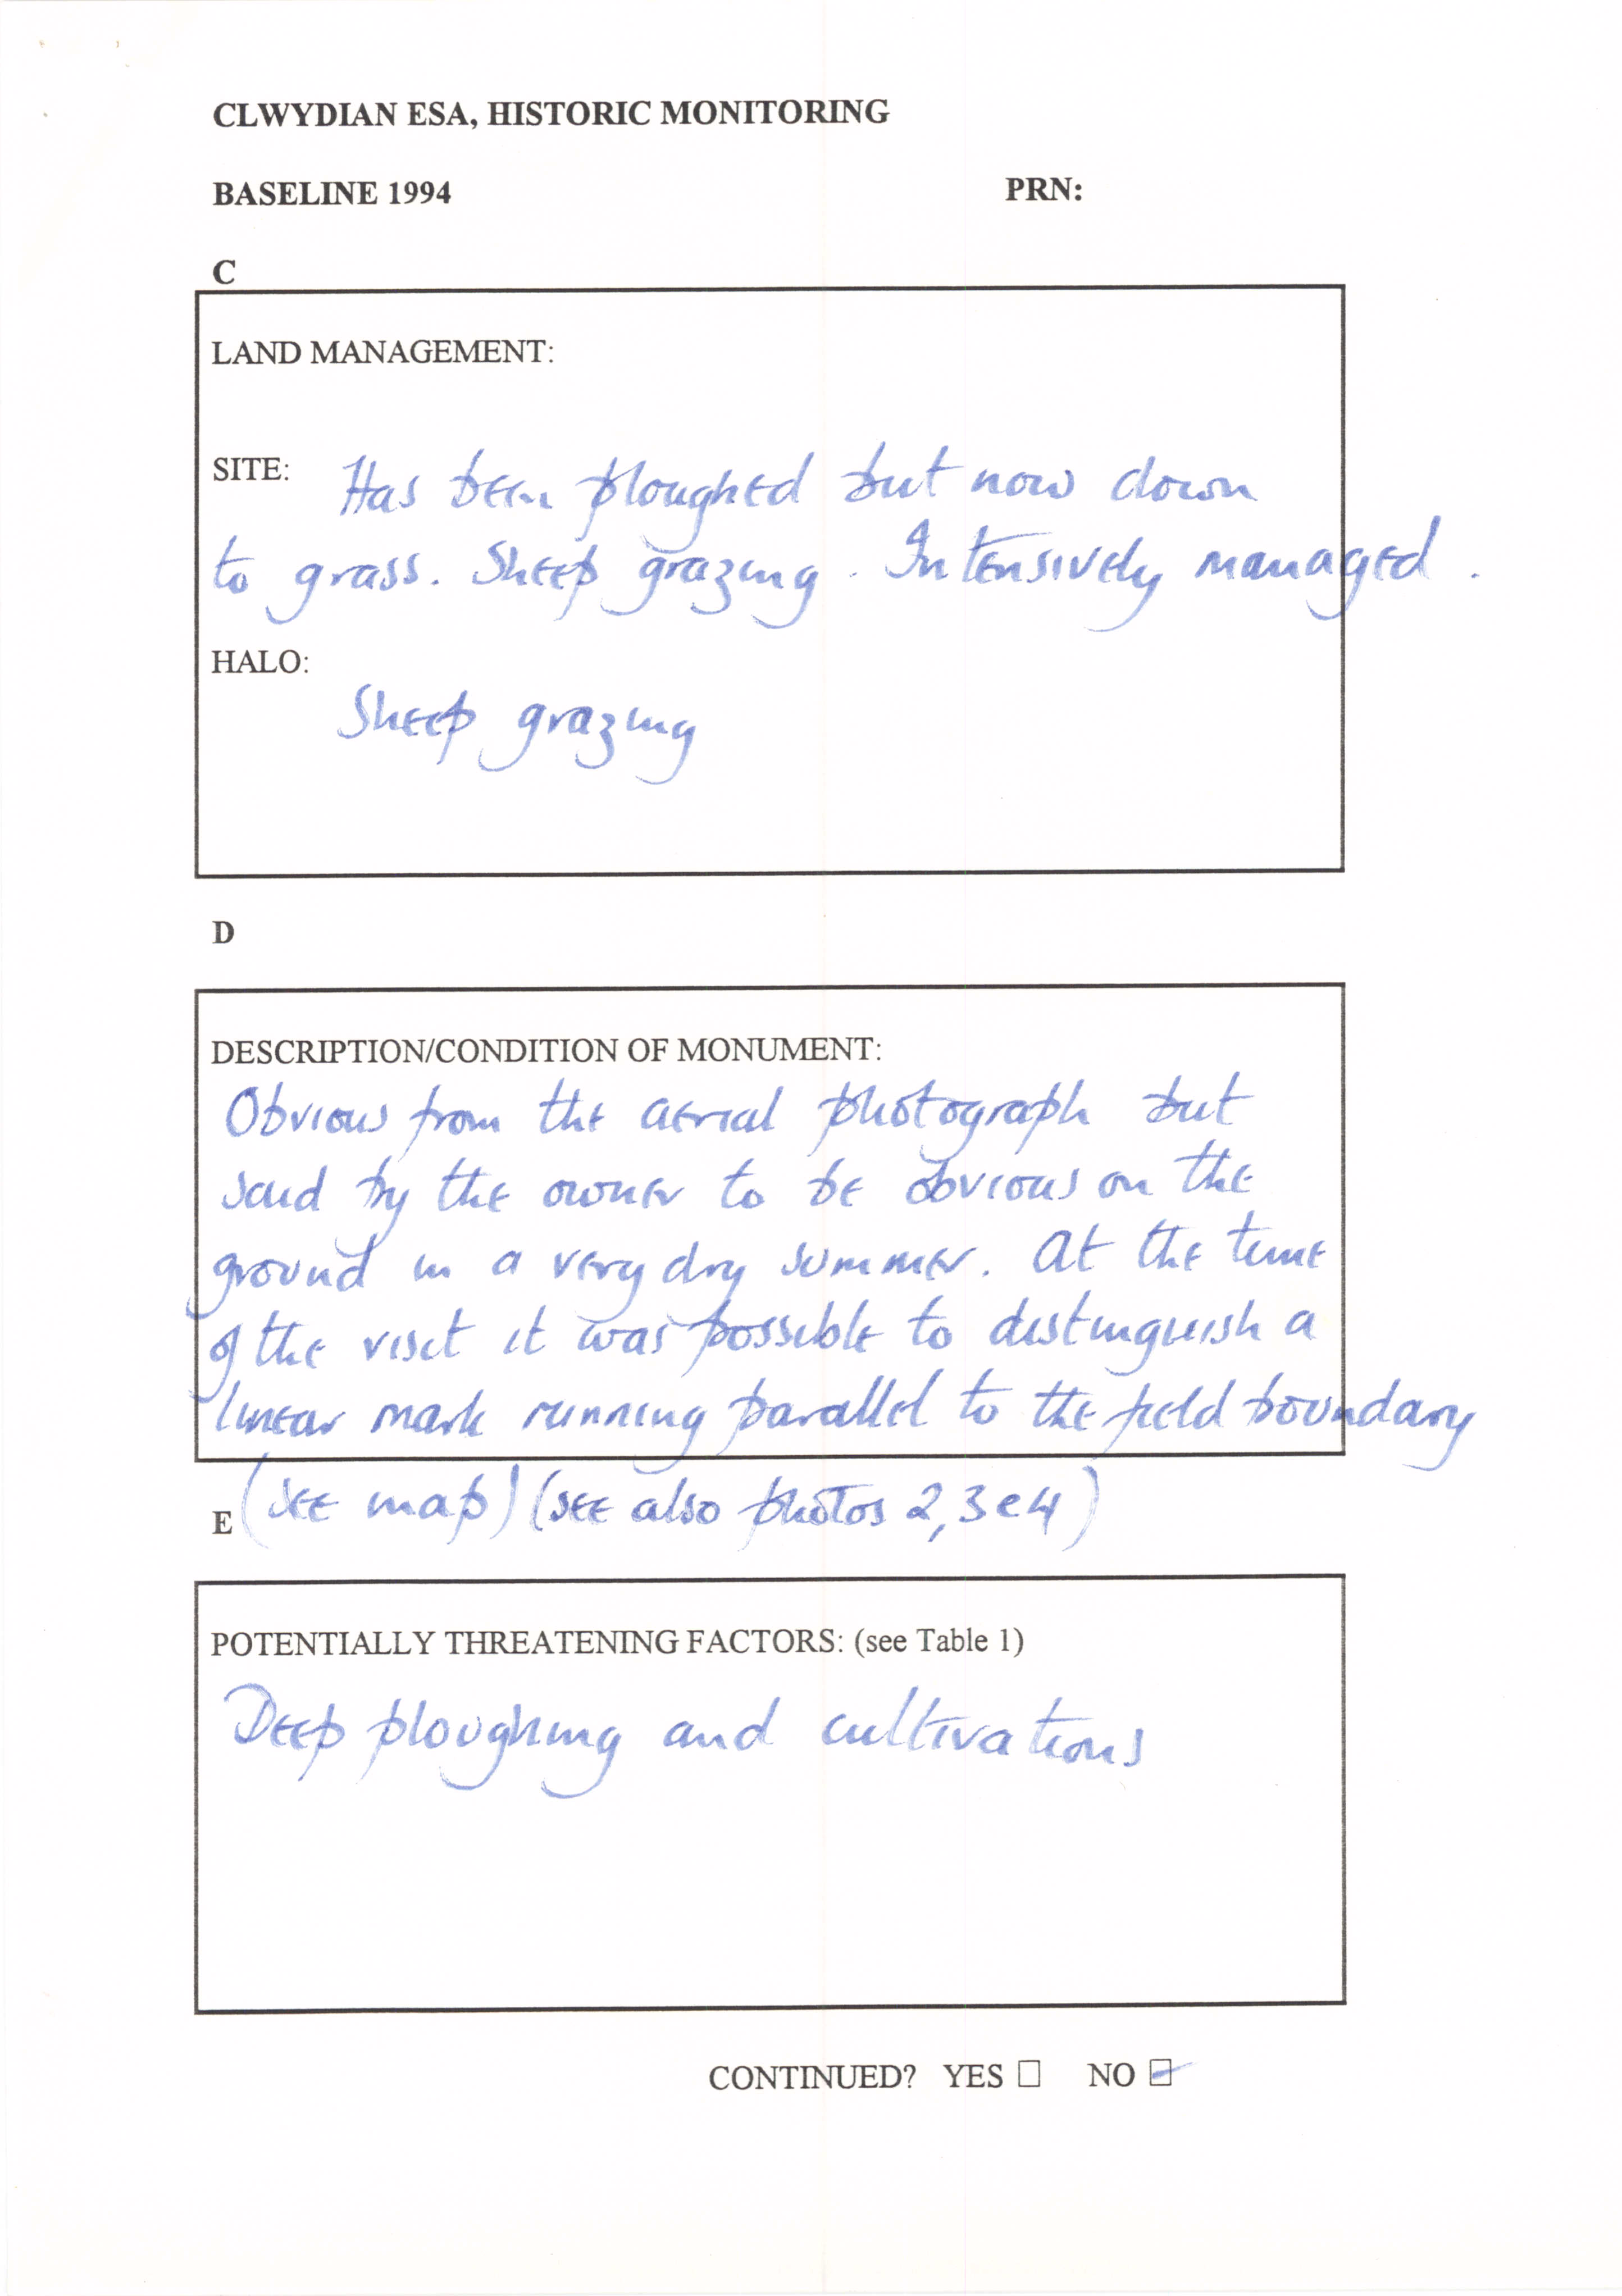 CLWYDIAN ESA, HISTORIC MONITORING
BASELINE 1994 PRN:
C
LAND MANAGEMENT:
SITE: Has been ploughed but now down
to grass. Sheep grazing. Intensively managed.
HALO:
Sheep grazing
D
DESCRIPTION/CONDITION OF MONUMENT:
Obvious from the aerial photograph but
said by the owner to be obvious on the
ground in a very dry summer. At the time
of the visit it was possible to distinguish a
linear mark running parallel to the field boundary
(see map) (see also photos 2, 3 e 4)
E
POTENTIALLY THREATENING FACTORS: (see Table 1)
Deep ploughing and cultivations
CONTINUED? YES ☐ NO ☑